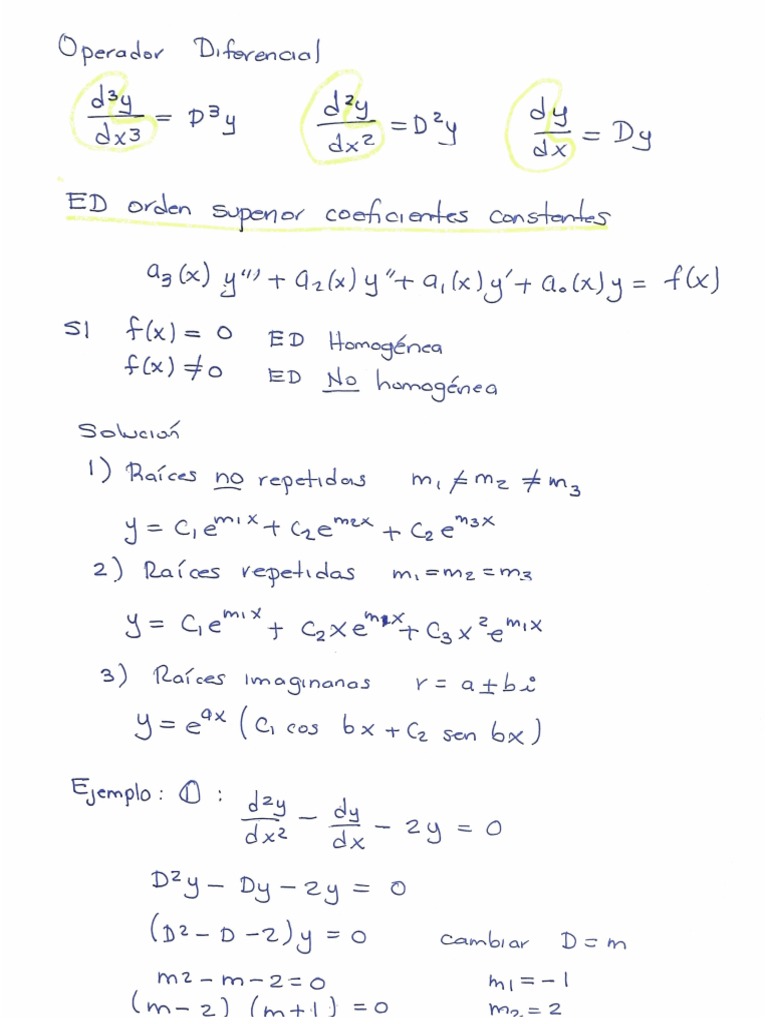 Operador Diferencial
d³y/dx³ = D³y   d²y/dx² = D²y   dy/dx = Dy
ED orden superior coeficientes constantes
a₃(x) y''' + a₂(x) y'' + a₁(x) y' + a₀(x) y = f(x)
SI f(x) = 0 ED Homogénea
f(x) ≠ 0 ED No homogénea
Solución
1) Raíces no repetidas m₁ ≠ m₂ ≠ m₃
y = C₁e^m₁x + C₂e^m₂x + C₂e^m₃x
2) Raíces repetidas m₁ = m₂ = m₃
y = C₁e^m₁x + C₂xe^m₁x + C₃x²e^m₁x
3) Raíces imaginarias r = a ± bi
y = e^ax (C₁ cos bx + C₂ sen bx)
Ejemplo: ① : d²y/dx² − dy/dx − 2y = 0
D²y − Dy − 2y = 0
(D² − D − 2) y = 0   cambiar D = m
m² − m − 2 = 0   m₁ = −1
(m − 2) (m + 1) = 0   m₂ = 2